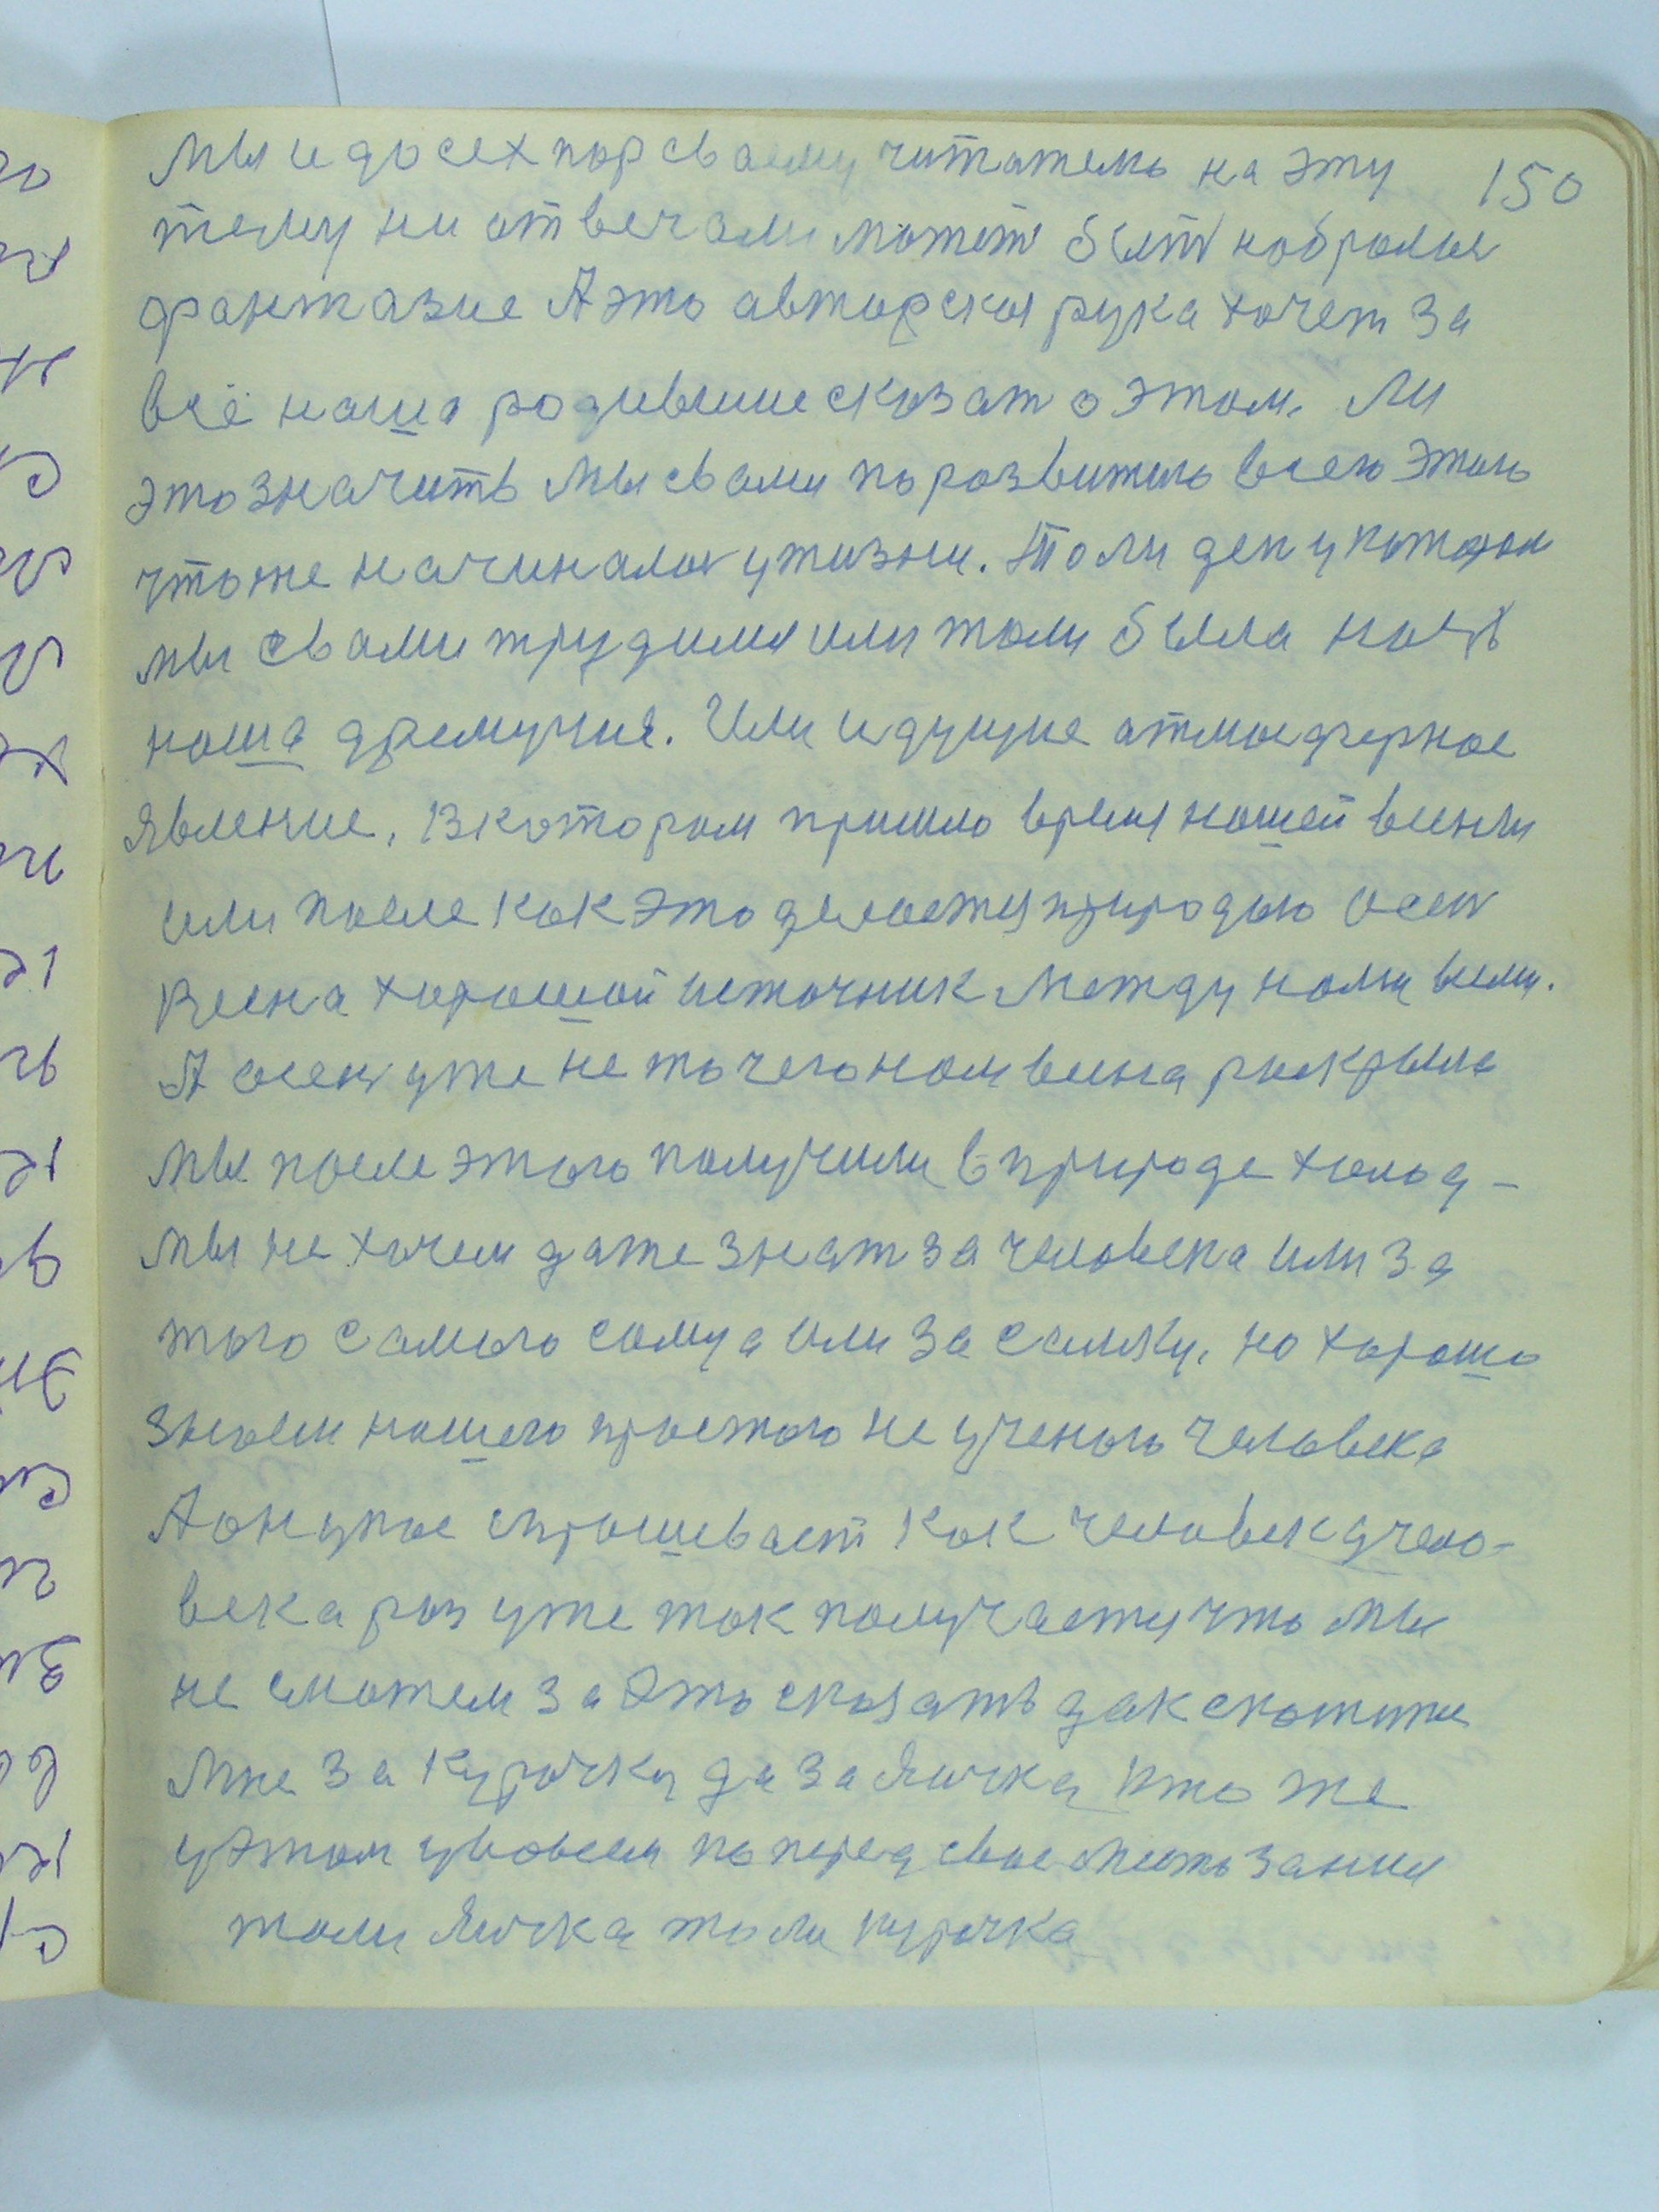 150
Мы и до сех пор сваему читателю на эту
тему ни отвечали может быть набралась
фантазие А это авторская рука хочет за
всё наша родившие сказат о этом. Ли
это значить Мы свами по развитию всего этого
что же начиналось у жизни. То ли ден у котором
мы свами трудимся или толи была ночь
наша дремучия. Или идущие атмосферное
явление. В котором пришло время нашей весны
или после как это делается природою осень
Весна хорошой источник между нами всеми.
А осень уже не то чего нам весна раскрыла
мы после этого получили в природе холод -
мы не хочем даже знат за человека или за
того самого самца или за самку. но хорошо
знаем нашего простого не ученого человека
А он у нас спрошевает как человек у чело-
века раз уже так получается что мы
не сможем за это сказать дак скотите
мне за курочку да за яичка кто же
у этом условеем поперед свое место занил
толи яичка толи курочка